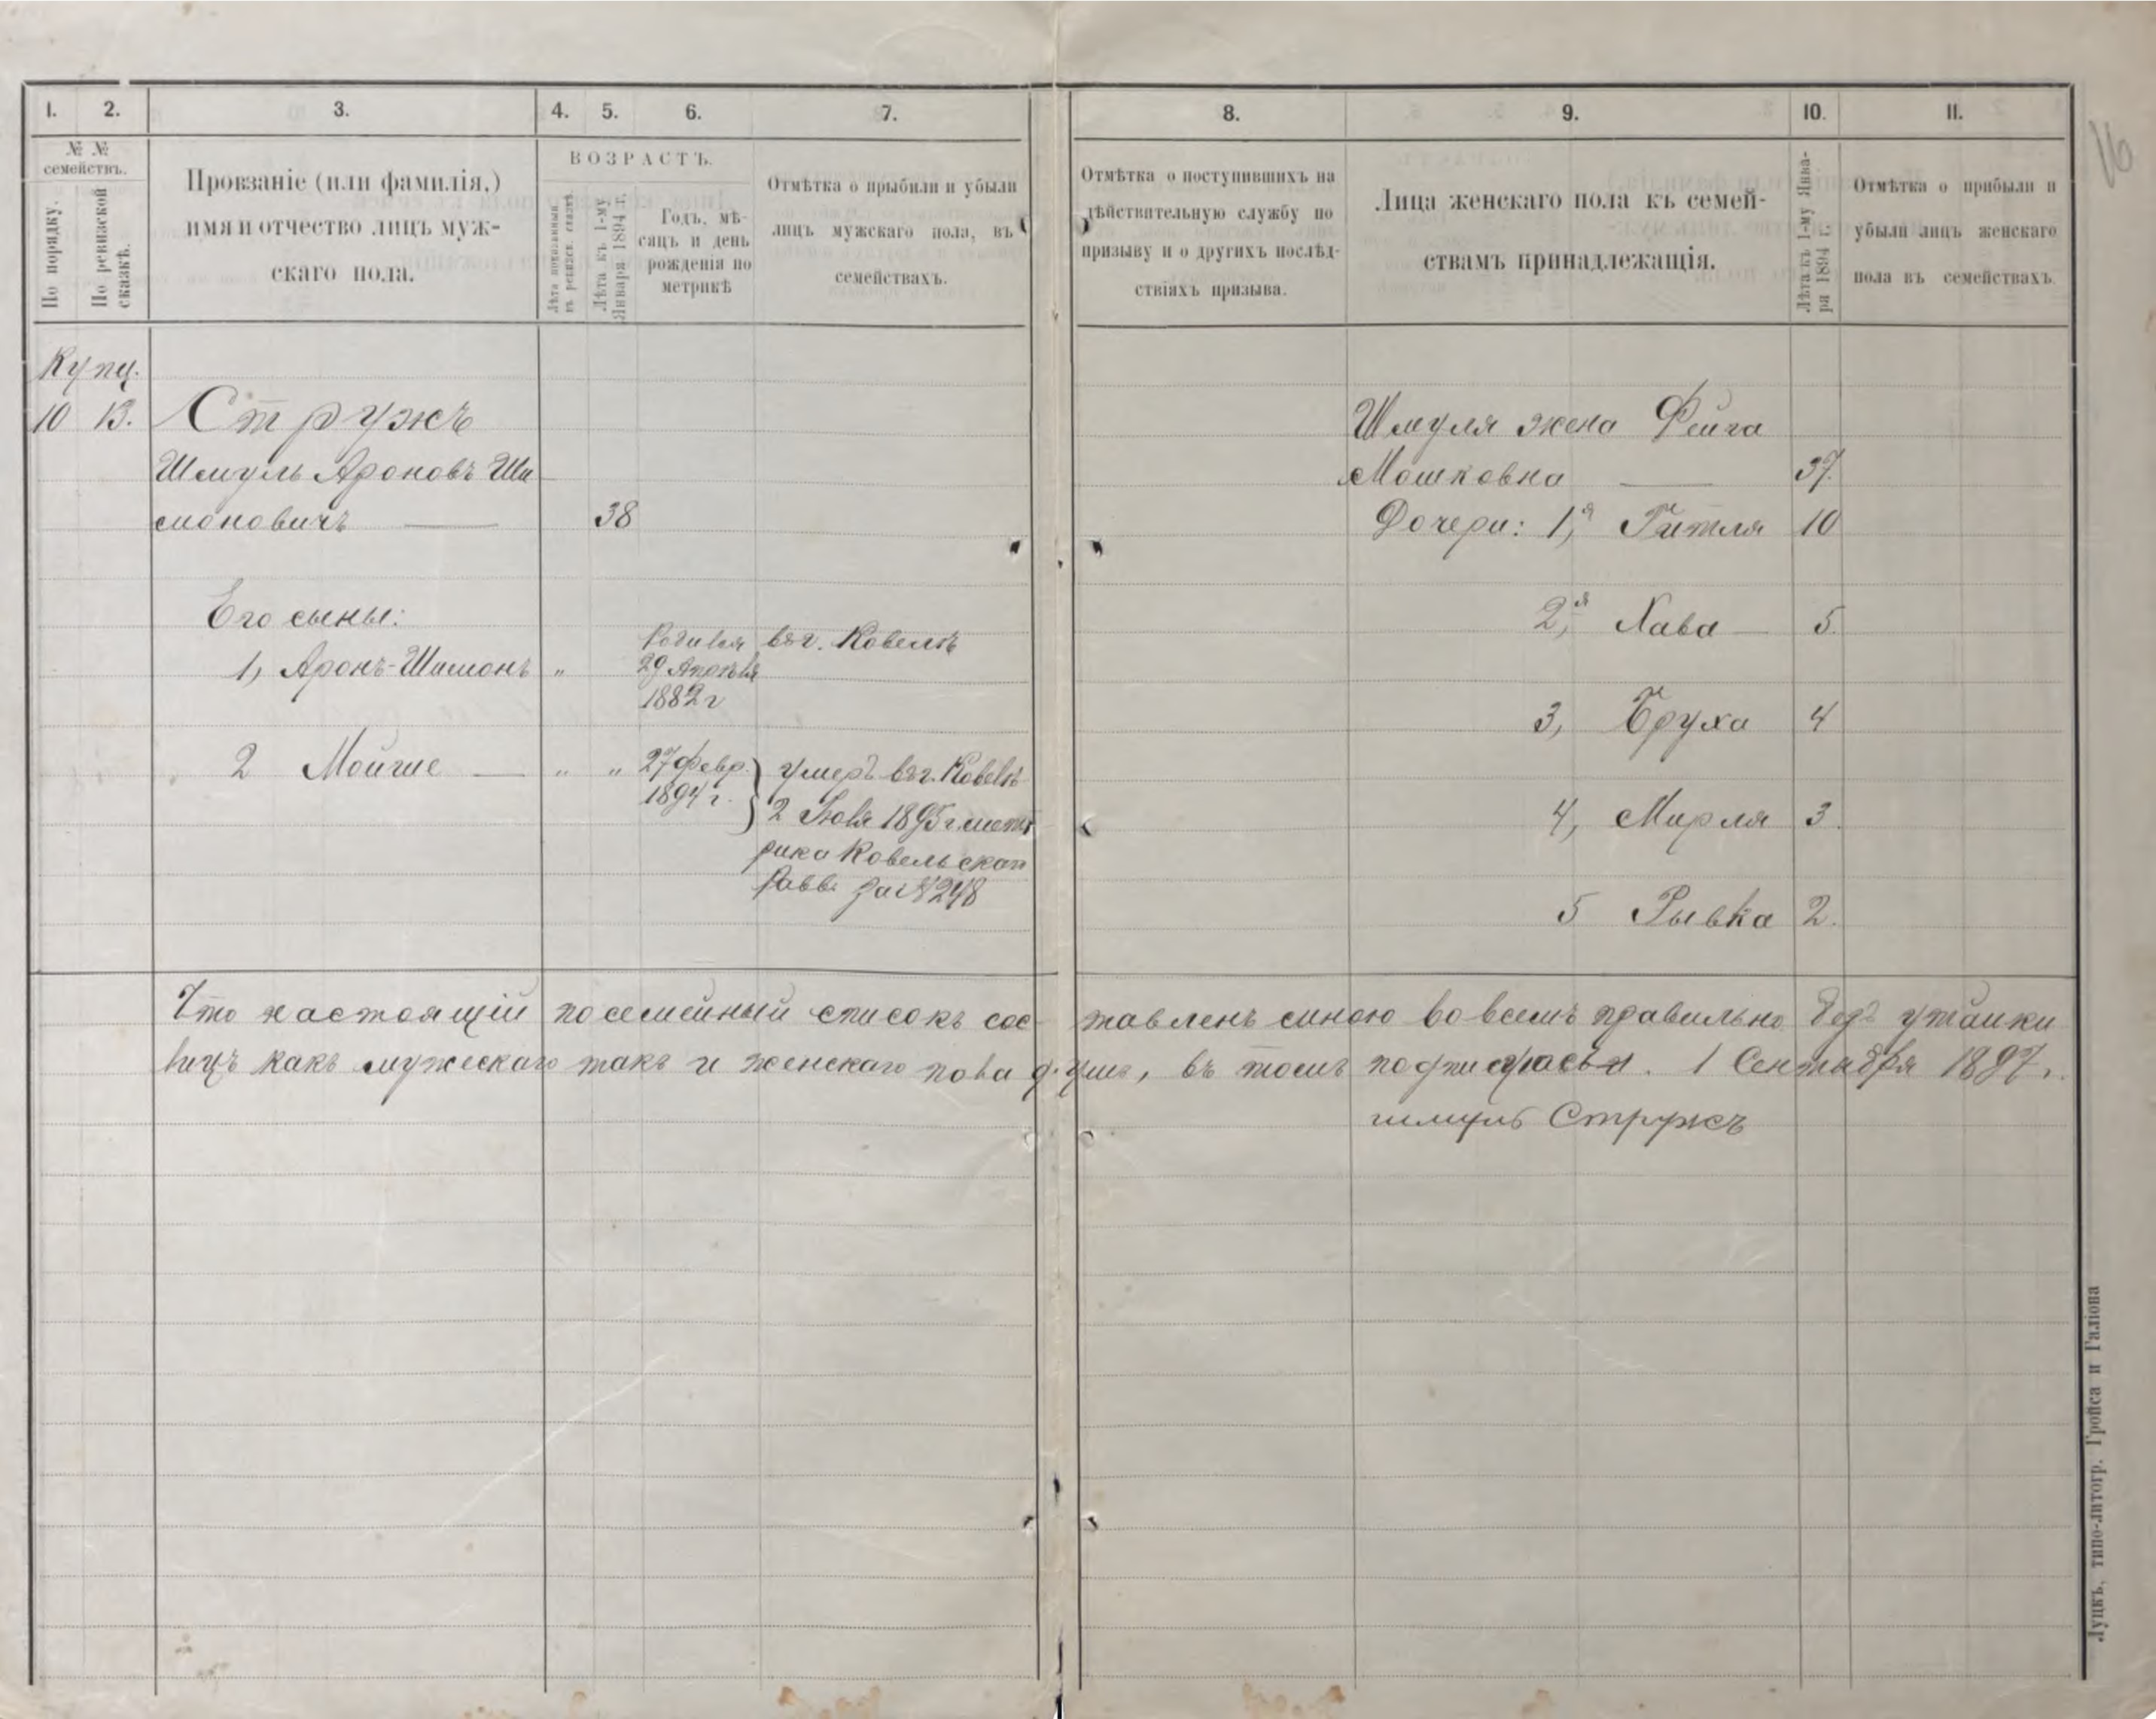 1. 2. 3. 4. 5. 6. 7. 8. 9. 10. 11.
16
№ №
семействъ.
По порядку.
По ревизской
сказкѣ.
Прозваніе (или фамилія,)
имя и отчество лицъ муж-
скаго пола.
ВОЗРАСТЪ.
Лѣта показанныя
въ ревизск. сказкѣ.
Лѣта къ 1-му
Января 1894 г.
Годъ, мѣ-
сяцъ и день
рожденія по
метрикѣ
Отмѣтка о прыбыли и убыли
лицъ мужскаго пола, въ
семействахъ.
Отмѣтка о поступившихъ на
дѣйствительную службу по
призыву и о другихъ послѣд-
ствіяхъ призыва.
Лица женскаго пола къ семей-
ствамъ принадлежащія.
Лѣта къ 1-му Янва-
ря 1894 г.
Отмѣтка о прибыли и
убыли лицъ женскаго
пола въ семействахъ.
Купц.
10 13. Стружъ
Шмуль Ароновъ Ши
моновичъ — 38
Его сыны:
1, Аронъ-Шимонъ „
Родился въ г. Ковелѣ
29 Апрѣля
1882 г
2 Мойше — „ „ 27 Февр.
1894 г.
умеръ въ г. Ковелѣ
2 Іюля 1895 г. мет
рика Ковельскаго
Равв. за № 248
Шмуля жена Фейга
Мошковна — 37.
Дочери: 1,я Гитля 10
2,я Хава — 5.
3, Бруха 4
4, Мирля 3.
5 Рывка 2.
Что настоящій посемейный списокъ составленъ мною во всемъ правильно безъ утайки
лицъ какъ мужескаго такъ и женскаго пола душъ, въ томъ подписуюсь. 1 Сентября 1897.
шмуль Стружъ
Луцкъ, типо-литогр. Гройса и Галіона